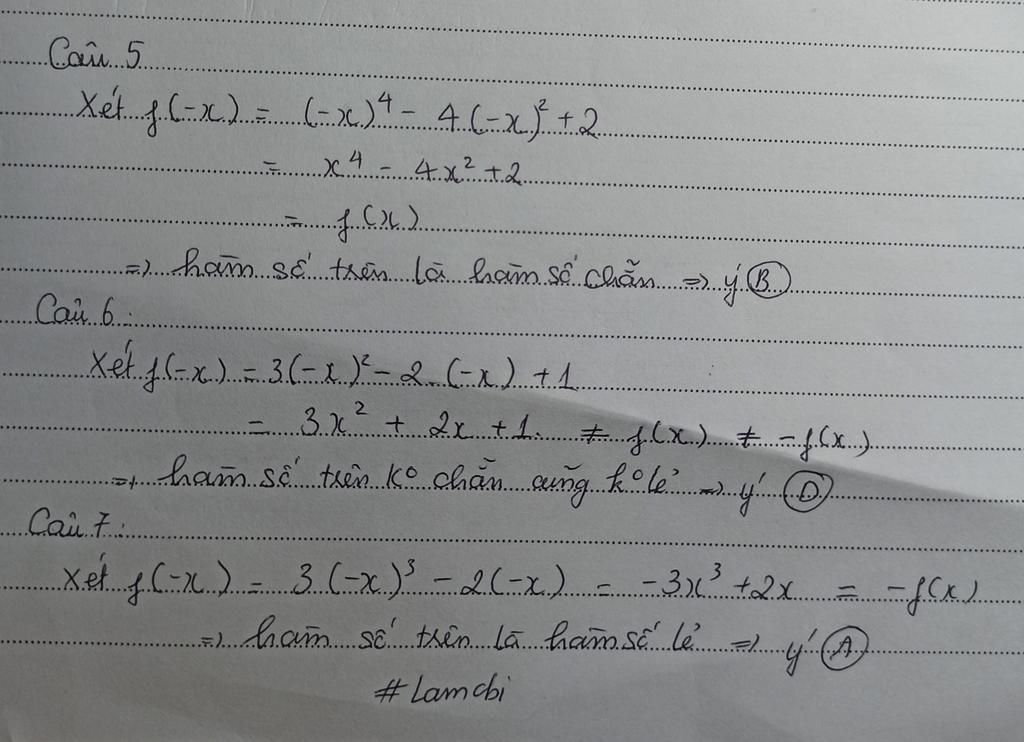 Câu 5
Xét f(-x) = (-x)⁴ - 4(-x)² + 2
= x⁴ - 4x² + 2
= f(x)
=> hàm số trên là hàm số chẵn => ý B
Câu 6:
Xét f(-x) = 3(-x)² - 2.(-x) + 1
= 3x² + 2x + 1 ≠ f(x) ≠ -f(x)
=> hàm số trên k° chẵn cũng k° lẻ => ý D
Câu 7:
Xét f(-x) = 3(-x)³ - 2(-x) = -3x³ + 2x = -f(x)
=> hàm số trên là hàm số lẻ => ý A
#Lamchi